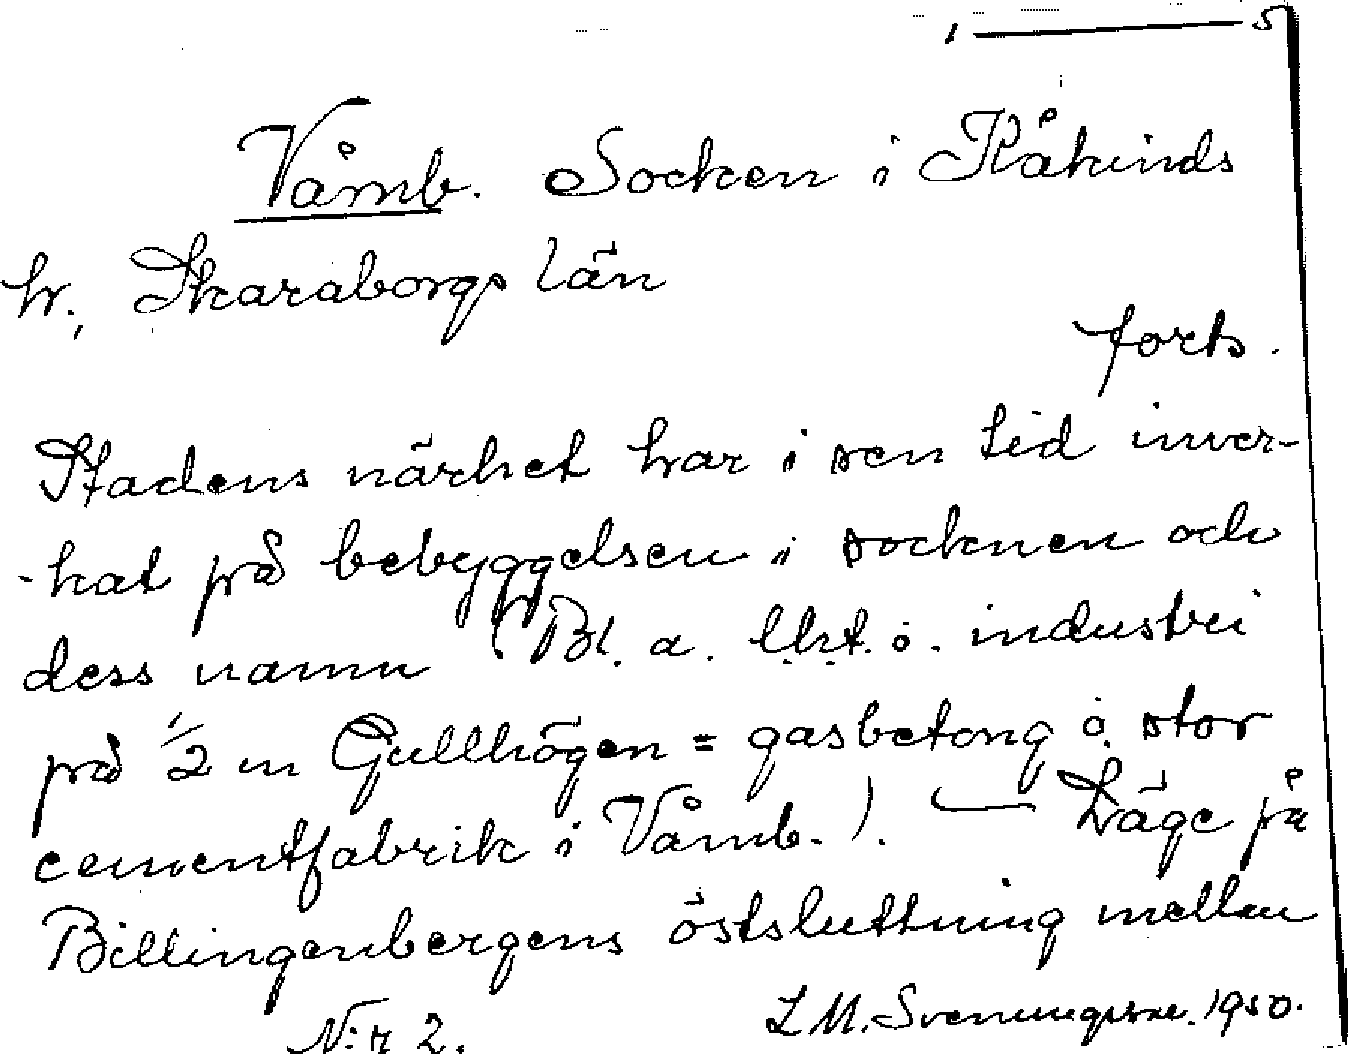 1 — 5
Våmb. Socken i Kåkinds
hr., Skaraborgs län
forts.
Stadens närhet har i sen tid inver-
-kat på bebyggelsen i socknen och
dess namn (Bl. a. i. industri
på 1/2 m Gullhögen = gasbetong o. stor
cementfabrik i Våmb.). — Läge på
Billingenbergens östsluttning mellan
N:r 2. L M. Svenungsson. 1950.